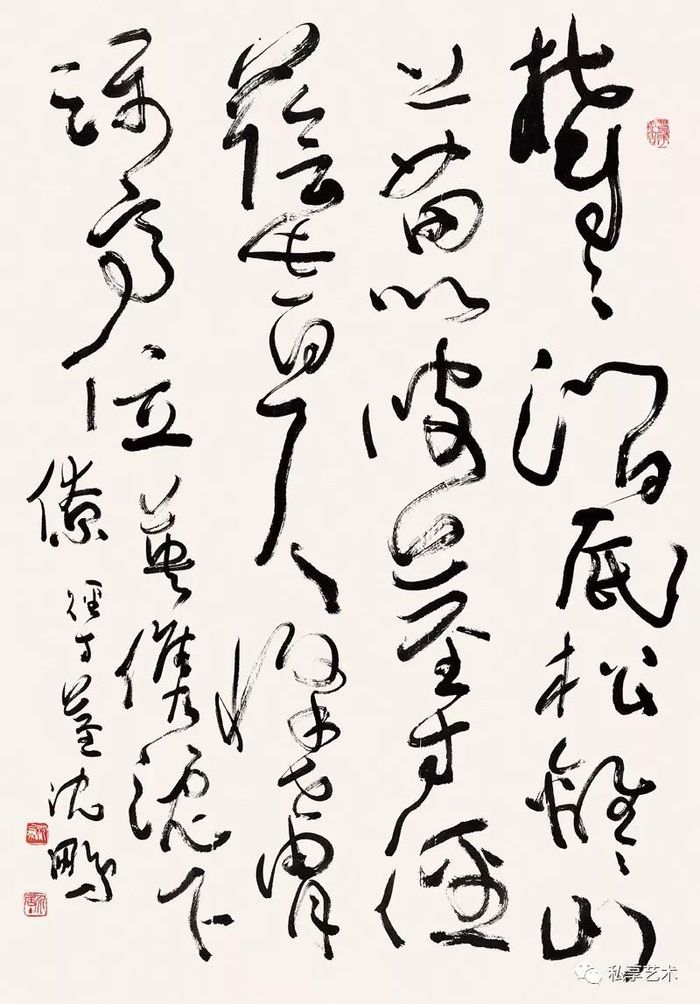 鬱〻澗底松離〻山
上苗以彼莖寸徑
蔭此百尺條世胄
躡高位英俊沈下
僚 徑寸莖 沈鵬
私享艺术